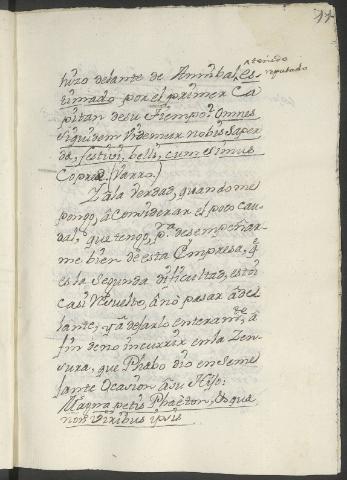 11
tenido
reputado
hizo delante de Annibal, es-
timado por el primer Ca
pitan de su Tiempo: Omnes
siquidem videmur nobis saper
da, festivi, belli, cum simus
Copreæ. (Varro.)
Ya la verdad, quando me
pongo, â considerar el poco cau-
dal, que tengo, pa. desempeñar-
me bien de esta Empresa, q̃
es la Segunda dificultad, estoi
casi resuelto, â no pasar âde
lante, y â dejarlo enteramte., â
fin de no incurrir en la Zen-
sura, que Phabo dio en Seme
jante Ocasion â su Hijo:
Magna petis Phaëton, & quæ
non viribus ipsis